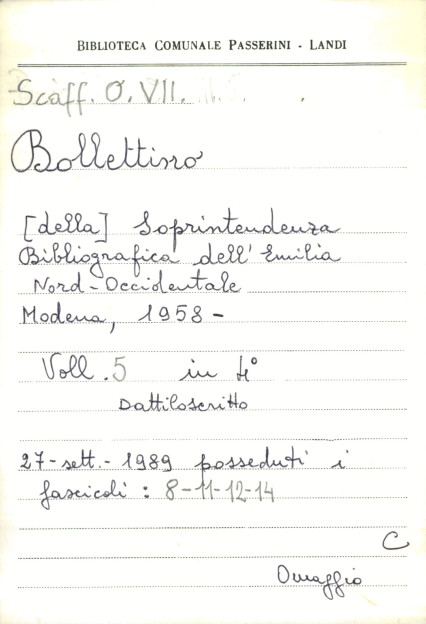 BIBLIOTECA COMUNALE PASSERINI - LANDI
Scaff. O.VII.
Bollettino
[della] Soprintendenza
Bibliografica dell'Emilia
Nord-Occidentale
Modena, 1958-
Voll. 5 in 4°
Dattiloscritto
27-sett.-1989 posseduti i
fascicoli : 8-11-12-14
C
Omaggio